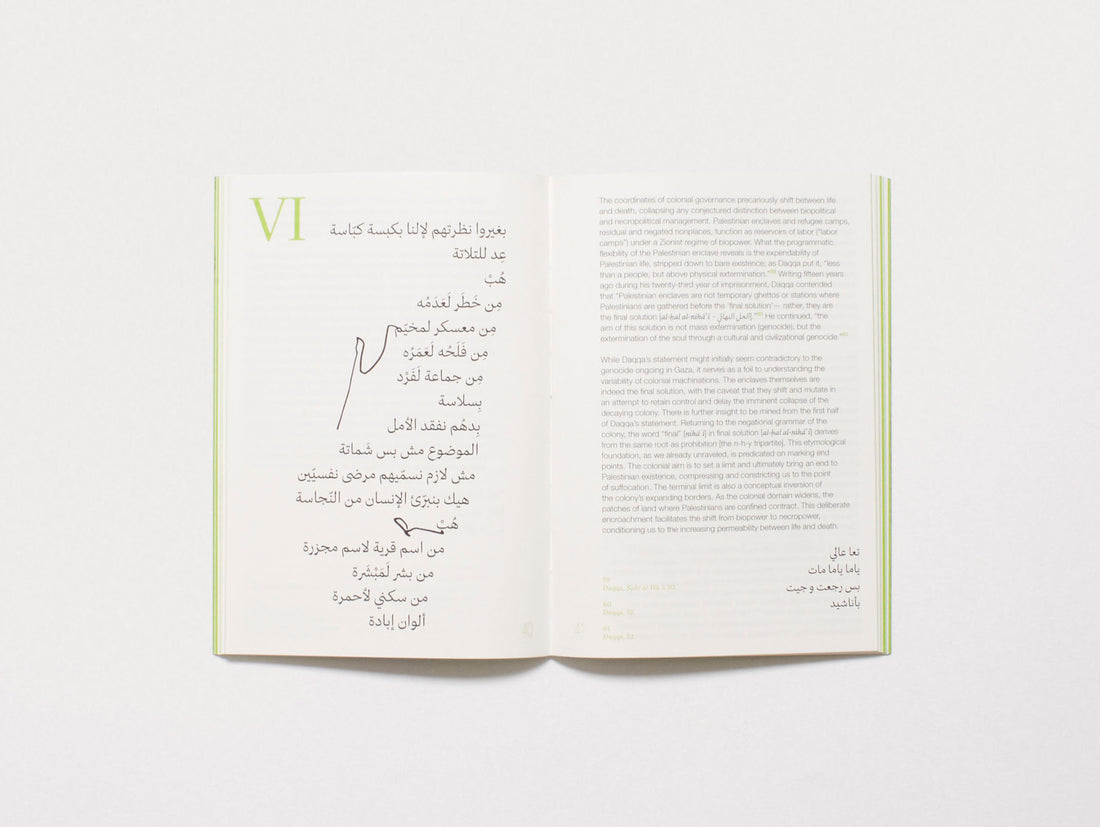 VI
بغيروا نظرتهم لإلنا بكبسة كبّاسة
عِد للتلاتة
هُبْ
مِن خَطَر لَعَدَمُه
مِن معسكر لمخيَم
مِن فَلَحُه لَعَمَرُه
مِن جماعة لَفَرْد
بِسلاسة
بِدهُم نفقد الأمل
الموضوع مش بس شَماتة
مش لازم نسمّيهم مرضى نفسيّين
هيك بنبرّئ الإنسان من النّجاسة
هُبْ
من اسم قرية لاسم مجزرة
من بشر لَمَبْشَرة
من سكني لأحمرة
ألوان إبادة
40
The coordinates of colonial governance precariously shift between life
and death, collapsing any conjectured distinction between biopolitical
and necropolitical management. Palestinian enclaves and refugee camps,
residual and negated nonplaces, function as reservoirs of labor ("labor
camps") under a Zionist regime of biopower. What the programmatic
flexibility of the Palestinian enclave reveals is the expendability of
Palestinian life, stripped down to bare existence; as Daqqa put it, "less
than a people, but above physical extermination."⁵⁹ Writing fifteen years
ago during his twenty-third year of imprisonment, Daqqa contended
that "Palestinian enclaves are not temporary ghettos or stations where
Palestinians are gathered before the 'final solution'— rather, they are
the final solution [al-ḥal al-nihāʾī – الحل النهائي]."⁶⁰ He continued, "the
aim of this solution is not mass extermination (genocide), but the
extermination of the soul through a cultural and civilizational genocide."⁶¹
While Daqqa's statement might initially seem contradictory to the
genocide ongoing in Gaza, it serves as a foil to understanding the
variability of colonial machinations. The enclaves themselves are
indeed the final solution, with the caveat that they shift and mutate in
an attempt to retain control and delay the imminent collapse of the
decaying colony. There is further insight to be mined from the first half
of Daqqa's statement. Returning to the negational grammar of the
colony, the word "final" [nihāʾī] in final solution [al-ḥal al-nihāʾī] derives
from the same root as prohibition [the n-h-y tripartite]. This etymological
foundation, as we already unraveled, is predicated on marking end
points. The colonial aim is to set a limit and ultimately bring an end to
Palestinian existence, compressing and constricting us to the point
of suffocation. The terminal limit is also a conceptual inversion of
the colony's expanding borders. As the colonial domain widens, the
patches of land where Palestinians are confined contract. This deliberate
encroachment facilitates the shift from biopower to necropower,
conditioning us to the increasing permeability between life and death.
تعا عالي
ياما ياما مات
بس رجعت و جيت
بأناشيد
59
Daqqa,
60
Daqqa,
61
Daqqa,
41